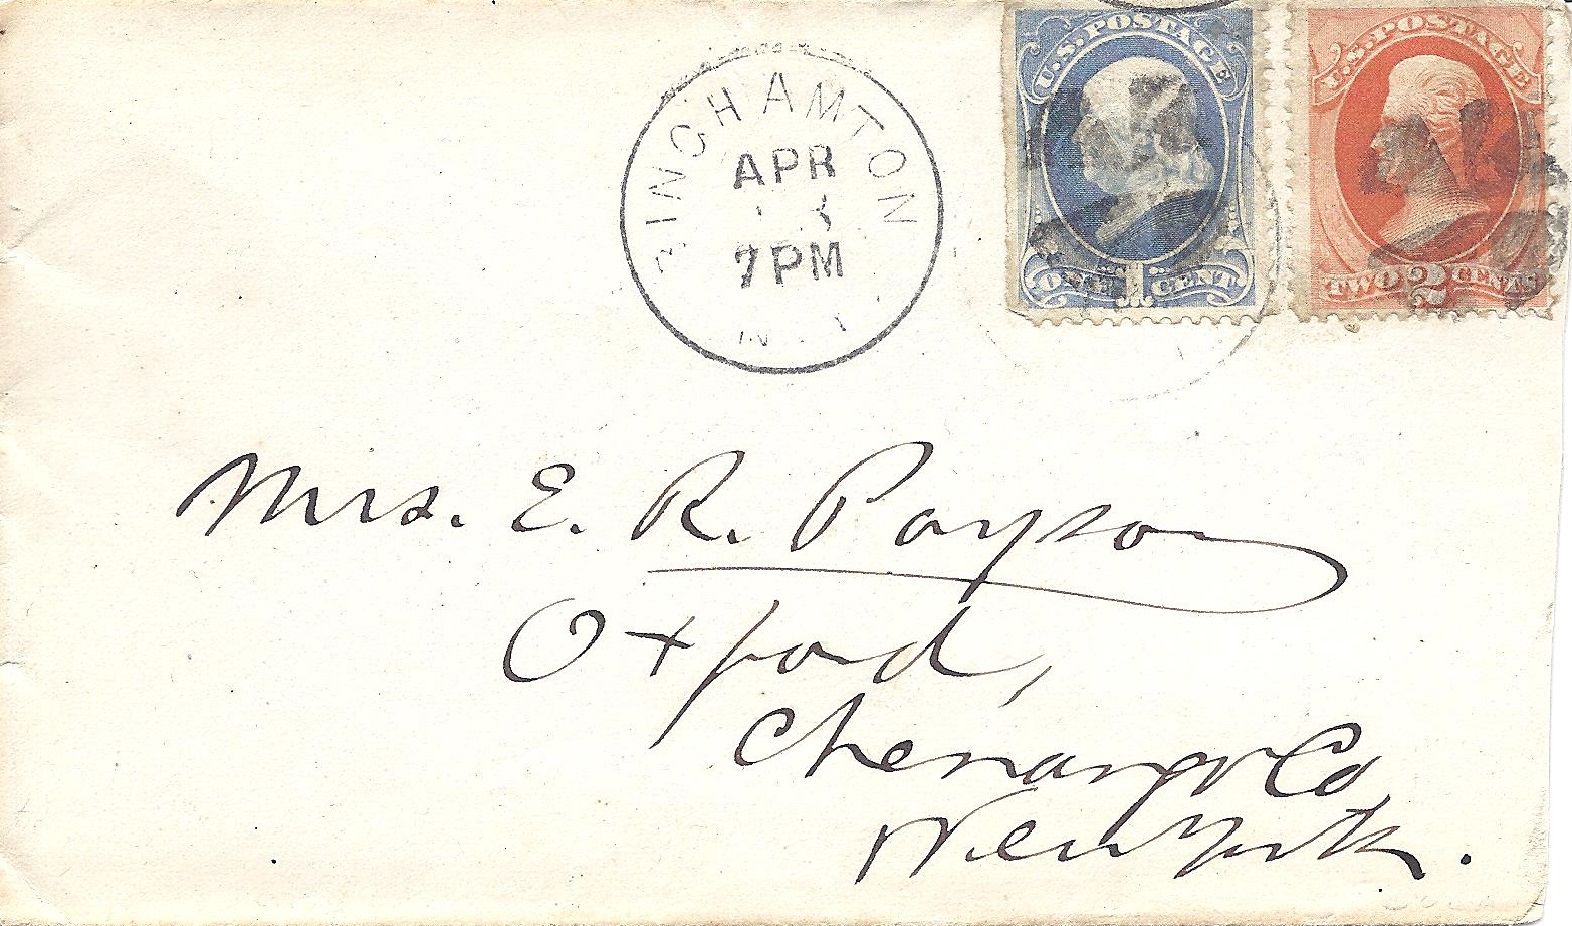 U.S. POSTAGE
ONE 1 CENT
U.S. POSTAGE
TWO 2 CENTS
BINGHAMTON
APR
7PM
N.Y.
Mrs. E. R. Payson
Oxford,
Chenango Co
New York.